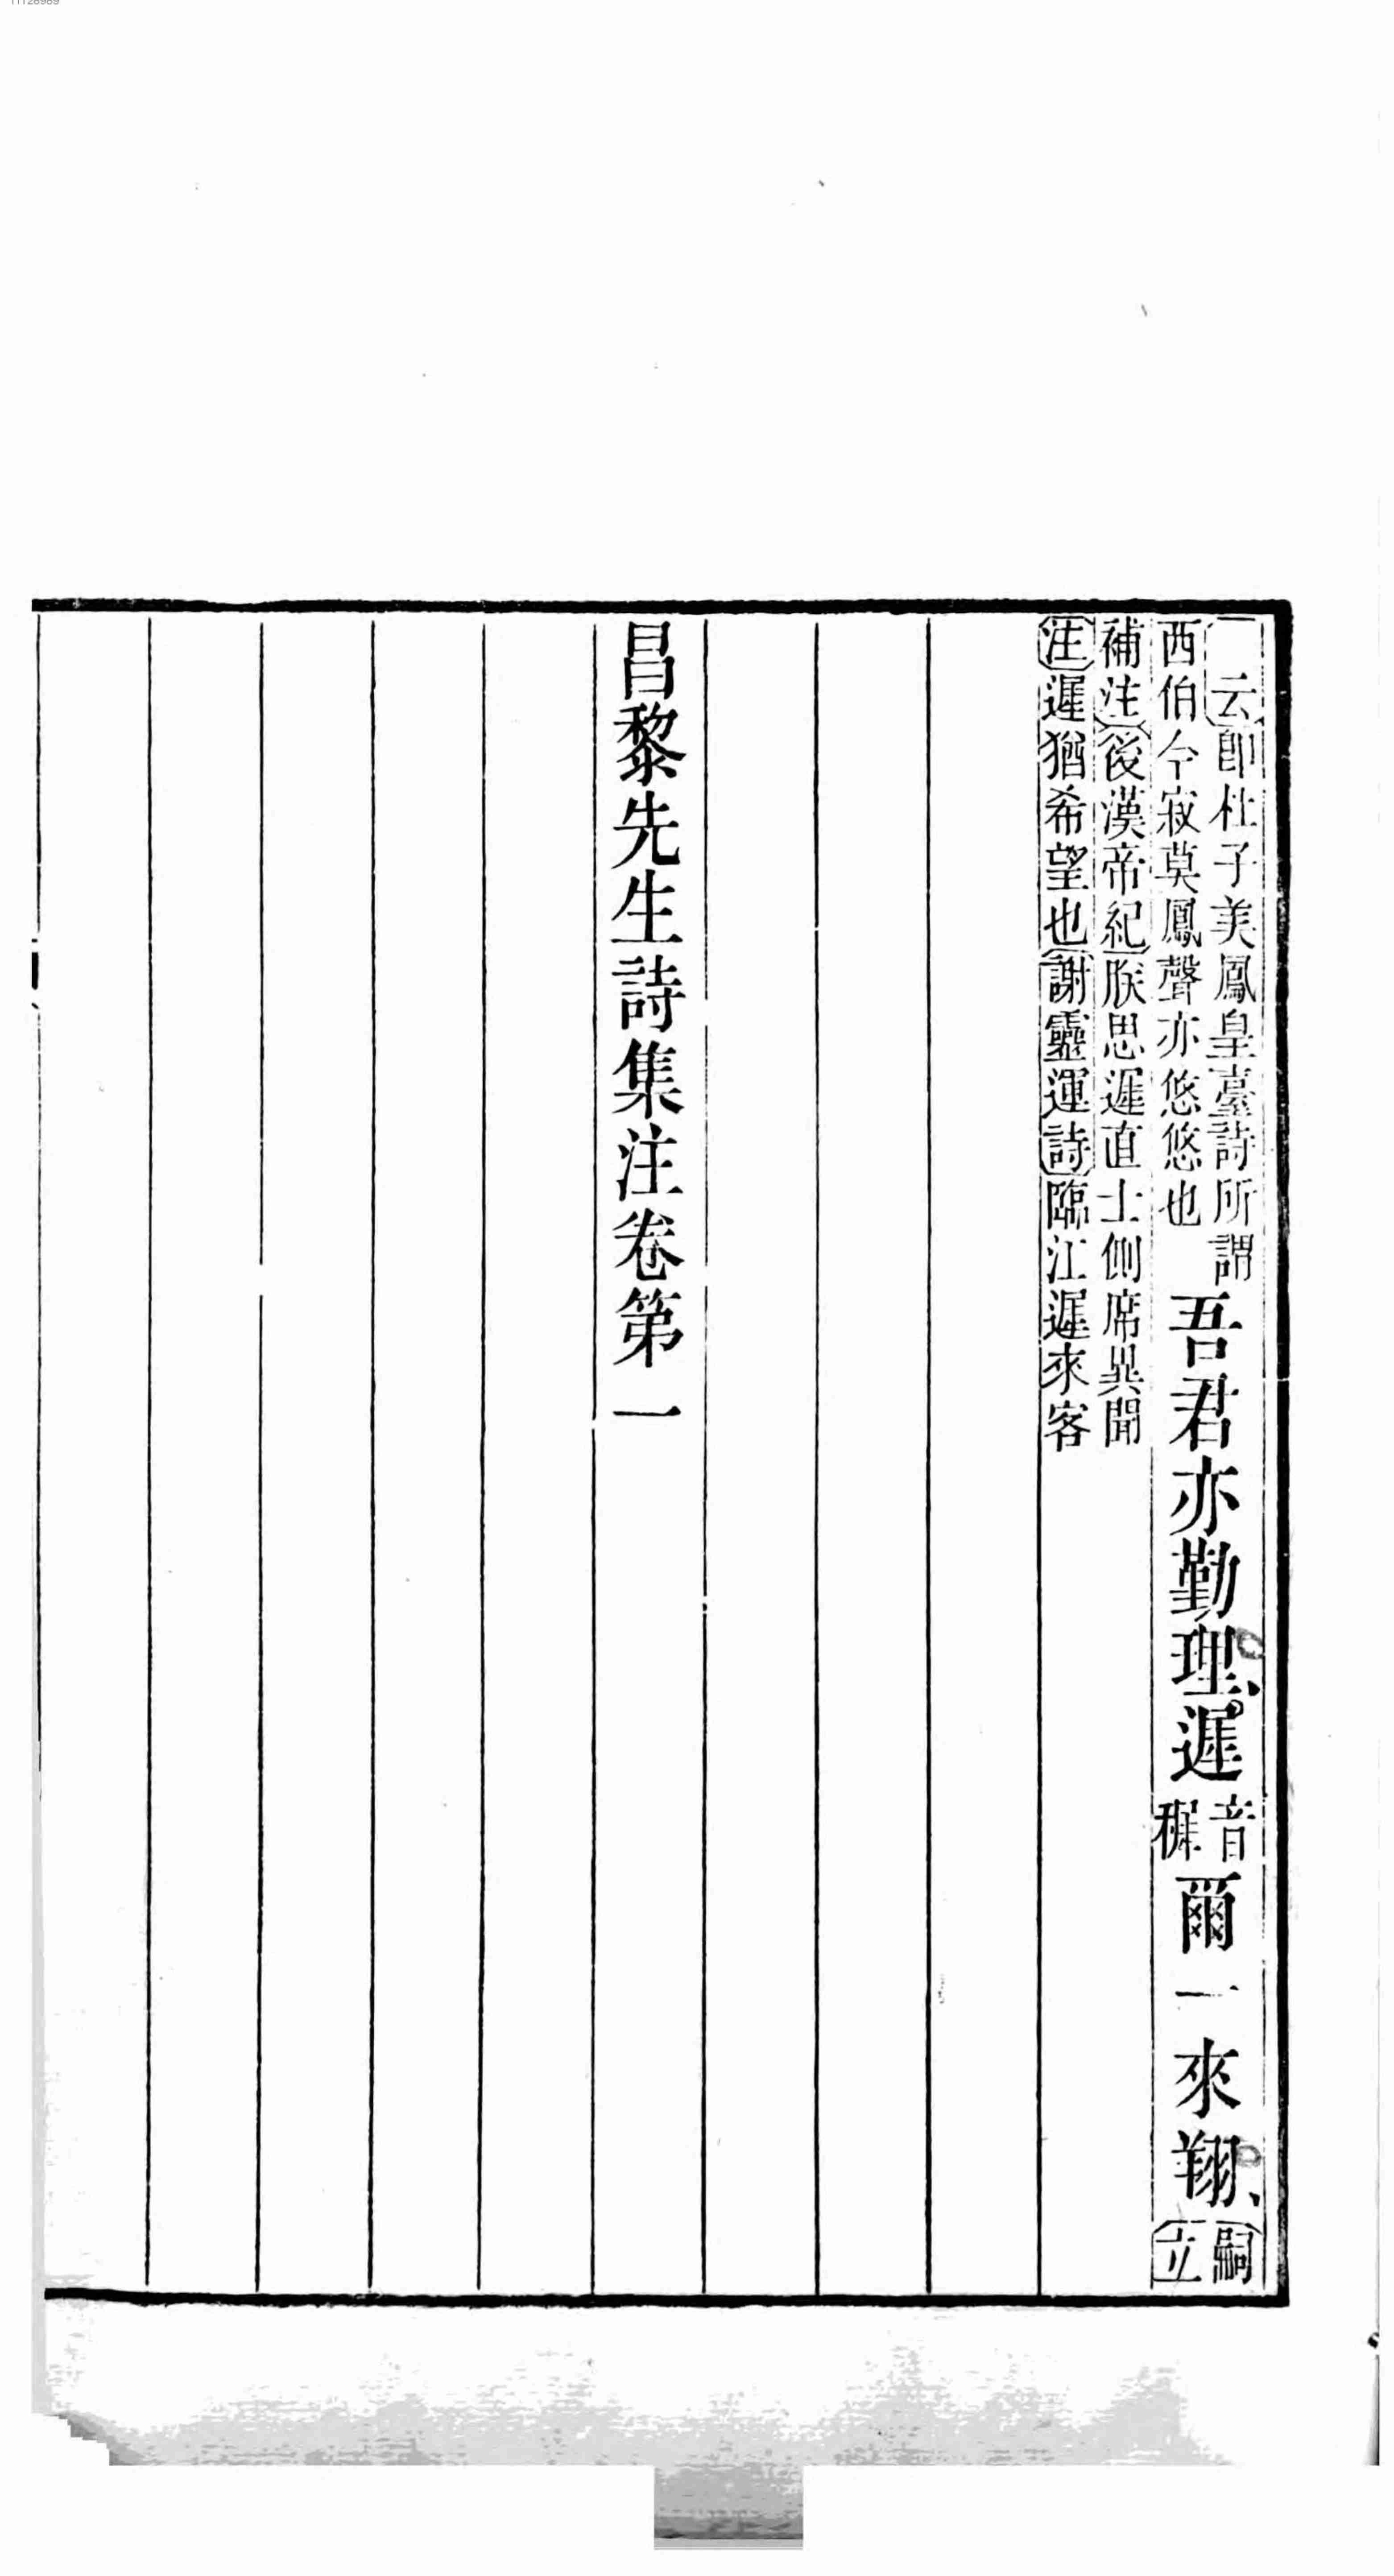 云即杜子美鳳皇臺詩所謂
西伯今寂莫鳳聲亦悠悠也
吾君亦勤理遲音穉爾一來翔嗣立
補注後漢帝紀朕思遲直士側席異聞
注遲猶希望也謝靈運詩臨江遲來客
昌黎先生詩集注卷第一